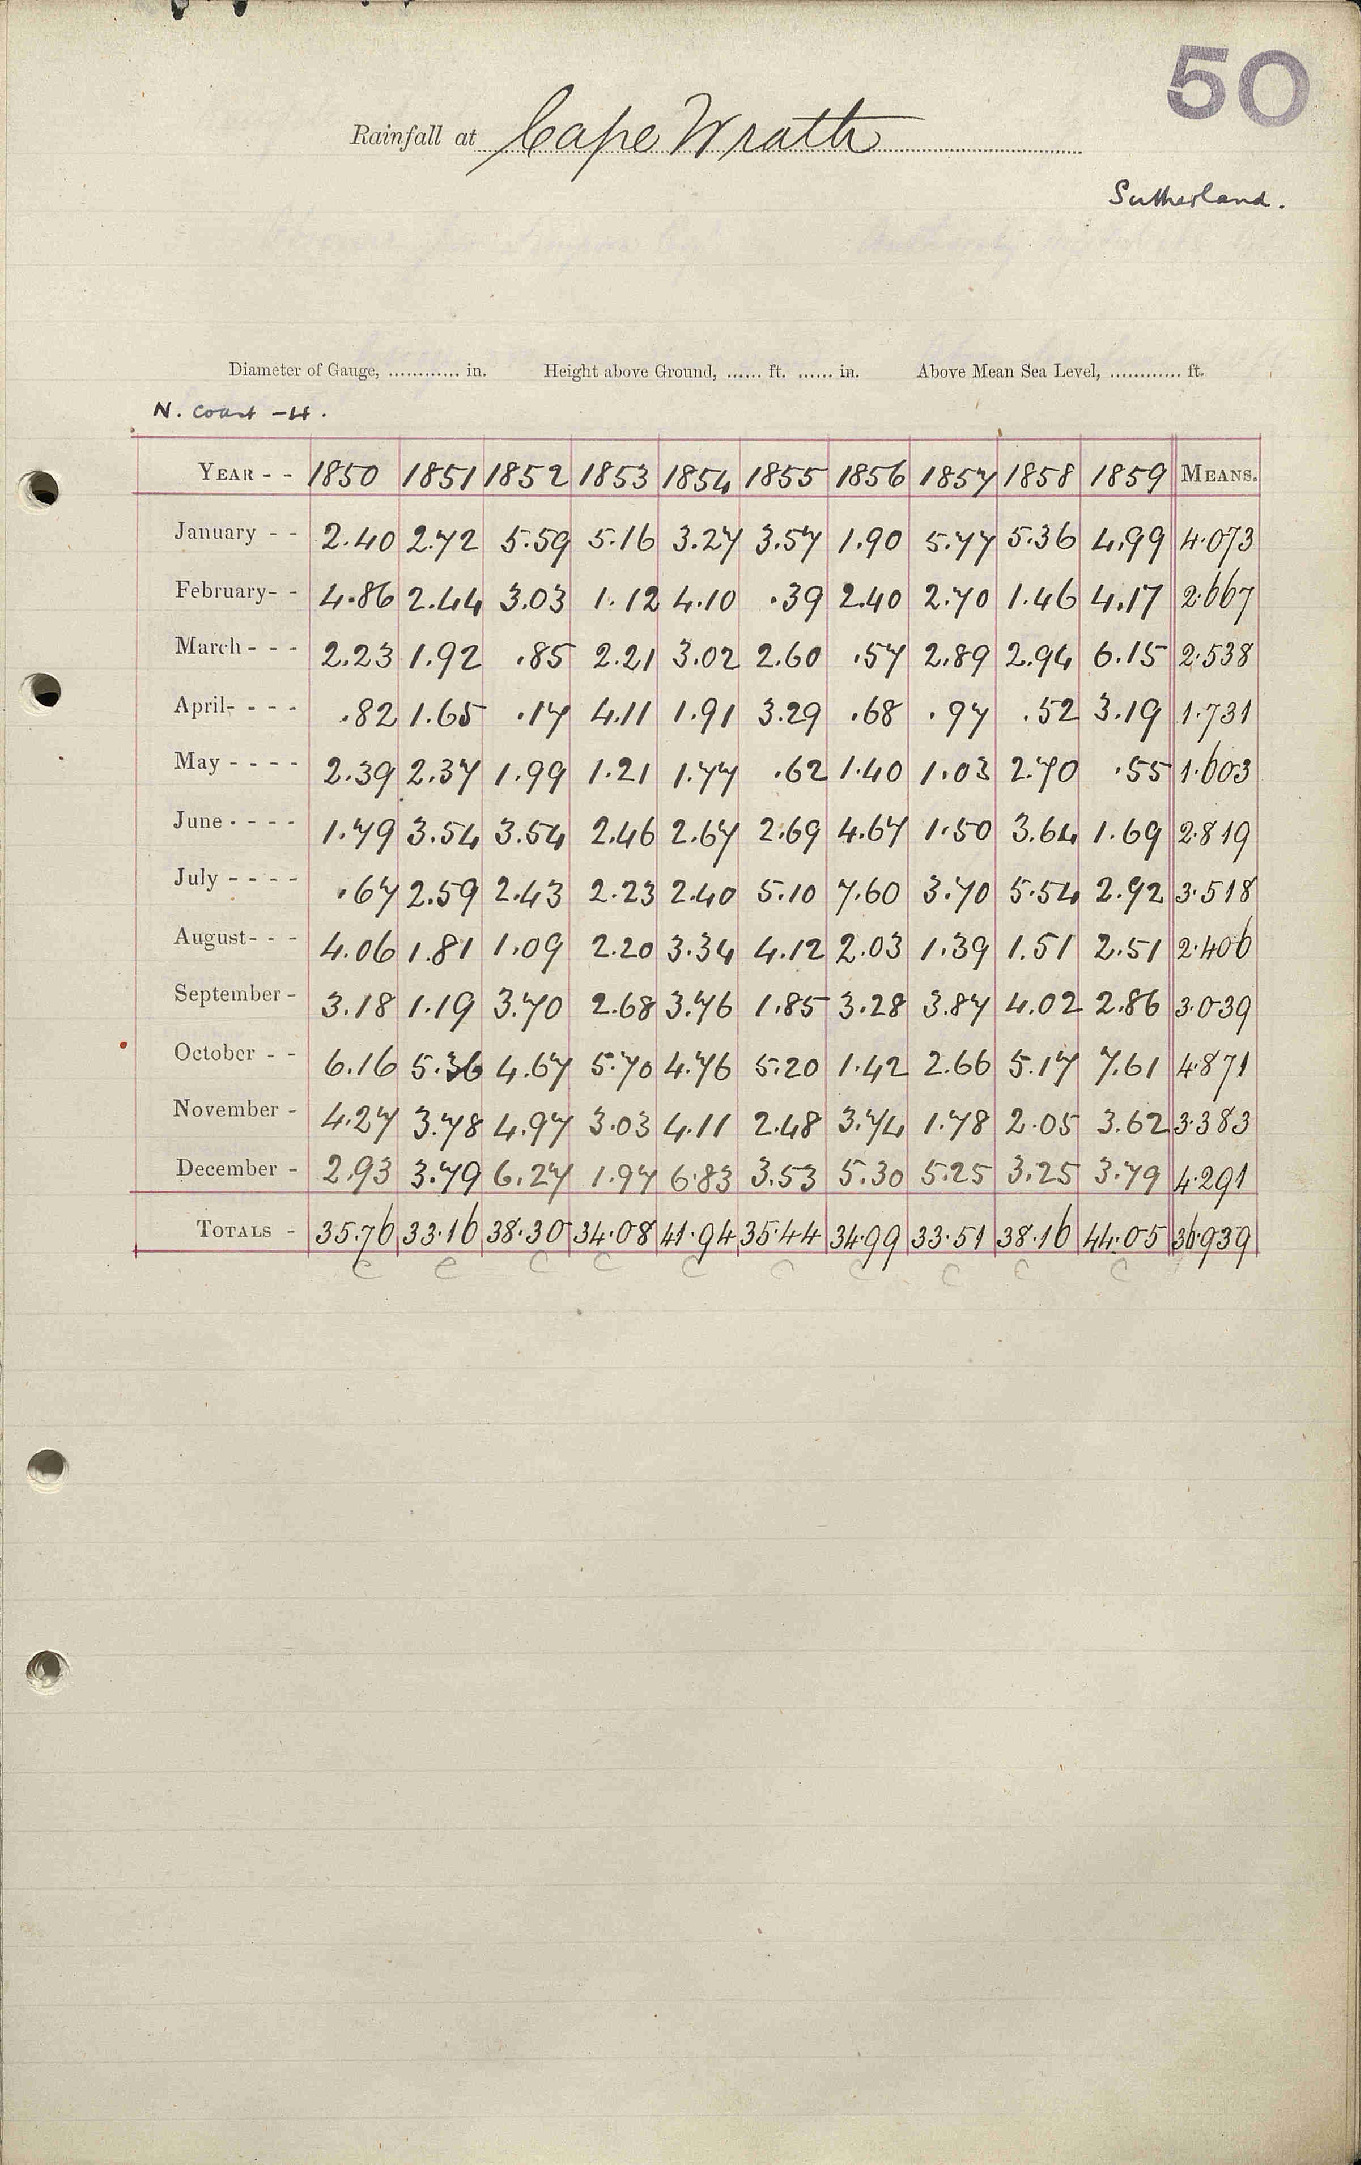 50
Rainfall at Cape Wrath
Sutherland.
Diameter of Gauge, ............ in. Height above Ground, ...... ft. ...... in. Above Mean Sea Level, ............ ft.
N. Coast - H.
YEAR - - 1850 1851 1852 1853 1854 1855 1856 1857 1858 1859 MEANS.
January - - 2.40 2.72 5.59 5.16 3.27 3.57 1.90 5.77 5.36 4.99 4.073
February- - 4.86 2.44 3.03 1.12 4.10 .39 2.40 2.70 1.46 4.17 2.667
March - - - 2.23 1.92 .85 2.21 3.02 2.60 .57 2.89 2.94 6.15 2.538
April- - - - .82 1.65 .17 4.11 1.91 3.29 .68 .97 .52 3.19 1.731
May - - - - 2.39 2.37 1.99 1.21 1.77 .62 1.40 1.03 2.70 .55 1.603
June - - - - 1.79 3.54 3.54 2.46 2.67 2.69 4.67 1.50 3.64 1.69 2.819
July - - - - .67 2.59 2.43 2.23 2.40 5.10 7.60 3.70 5.54 2.92 3.518
August- - - 4.06 1.81 1.09 2.20 3.34 4.12 2.03 1.39 1.51 2.51 2.406
September - 3.18 1.19 3.70 2.68 3.76 1.85 3.28 3.87 4.02 2.86 3.039
October - - 6.16 5.36 4.67 5.70 4.76 5.20 1.42 2.66 5.17 7.61 4.871
November - 4.27 3.78 4.97 3.03 4.11 2.48 3.74 1.78 2.05 3.62 3.383
December - 2.93 3.79 6.27 1.97 6.83 3.53 5.30 5.25 3.25 3.79 4.291
TOTALS - 35.76 33.16 38.30 34.08 41.94 35.44 34.99 33.51 38.16 44.05 36.939
C C C C C C C C C C